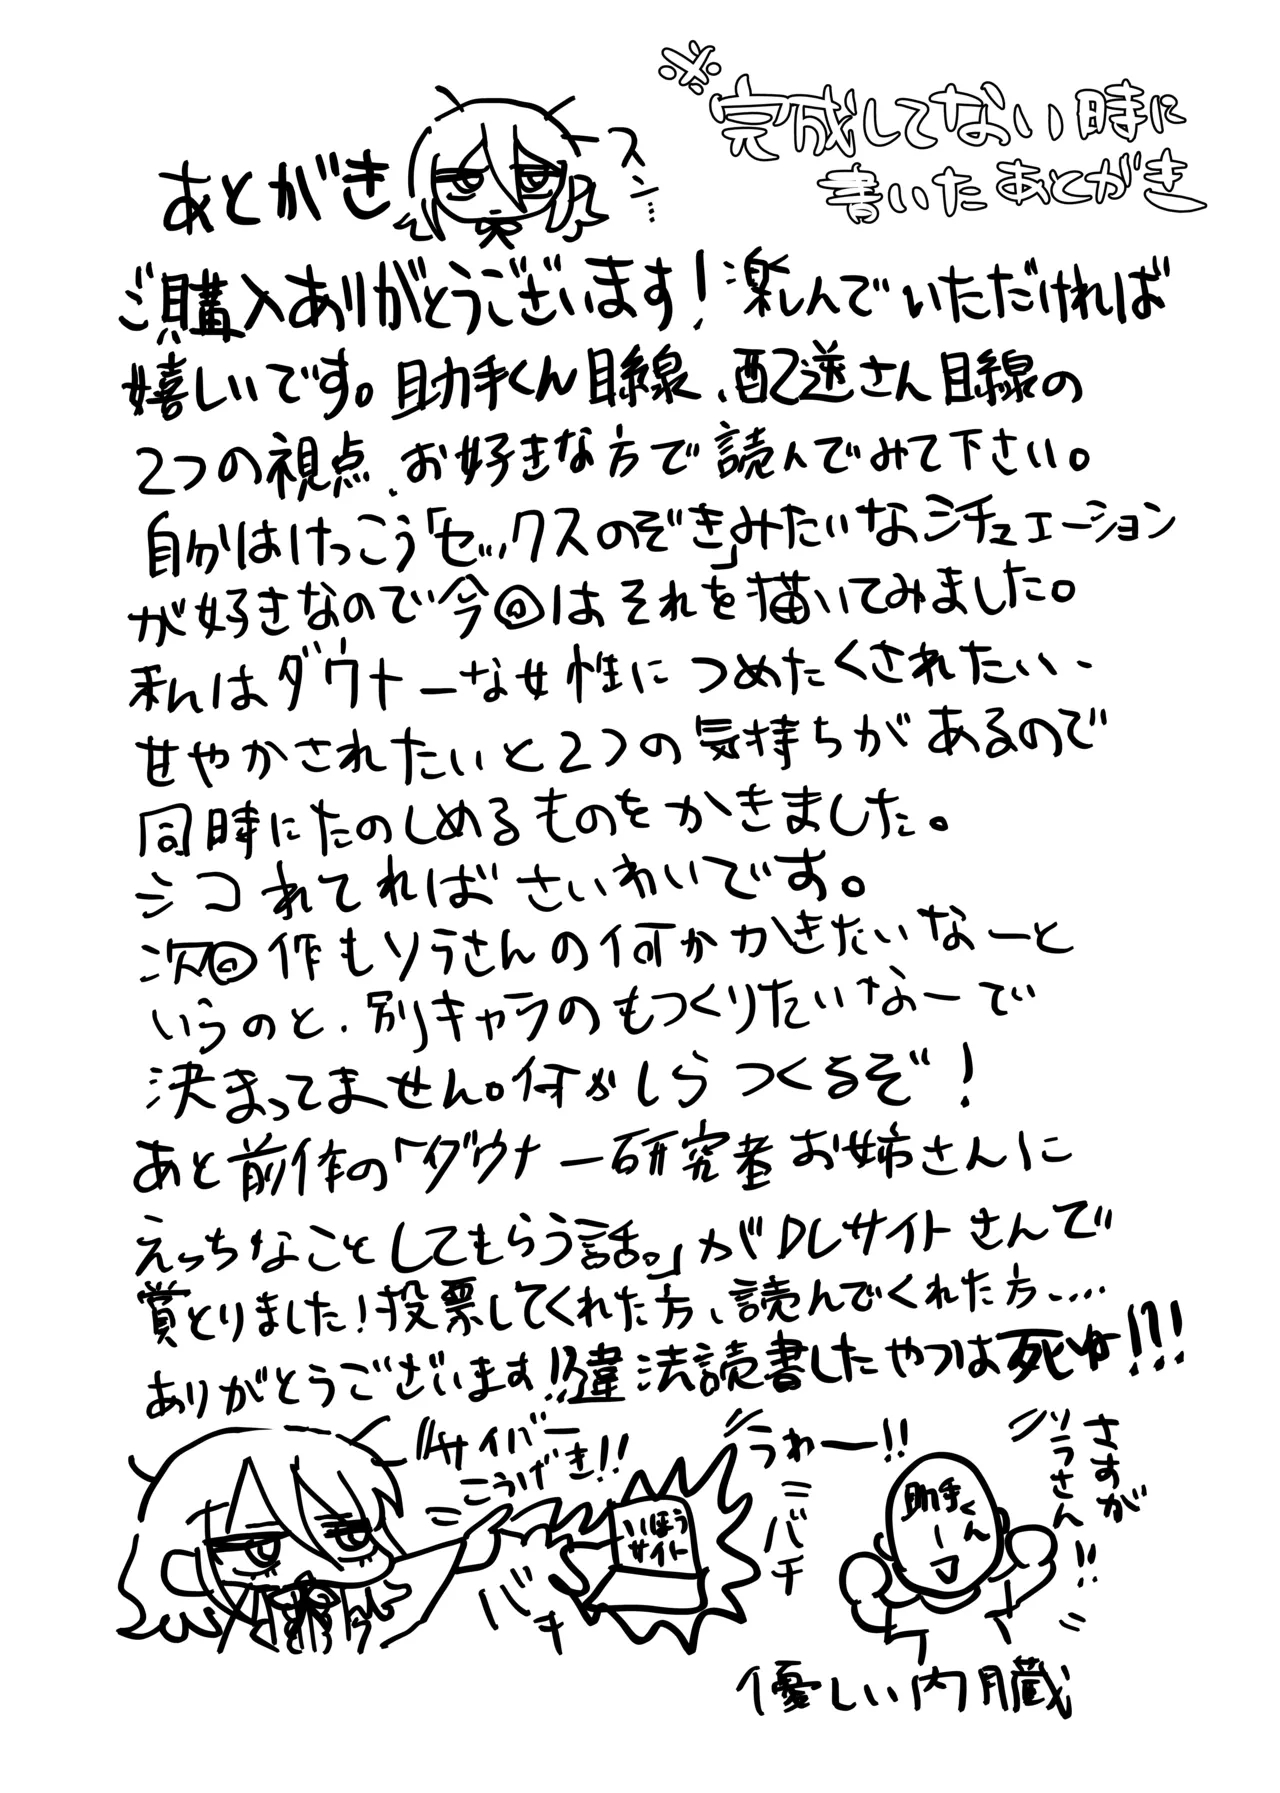 ※完成してない時に
書いたあとがき
あとがき
スン…
ご購入ありがとうございます！楽しんでいただければ
嬉しいです。助手くん目線、配送さん目線の
2つの視点、お好きな方で読んでみて下さい。
自分はけっこう「セックスのぞき」みたいなシチュエーション
が好きなので今回はそれを描いてみました。
私はダウナーな女性につめたくされたい、
甘やかされたいと2つの気持ちがあるので
同時にたのしめるものをかきました。
シコれてればさいわいです。
次回作もソラさんの何かかきたいなーと
いうのと、別キャラのもつくりたいなーで
決まってません。何かしらつくるぞ！
あと前作の「ダウナー研究者お姉さんに
えっちなことしてもらう話。」がDLサイトさんで
賞とりました！投票してくれた方、読んでくれた方....
ありがとうございます!!違法読書したやつは死ゆ!!!
サイバー
こうげき!!
いほう
サイト
バキ
うわー!!
バチ
助手くん
さすが
ソラさん!!
優しい内臓